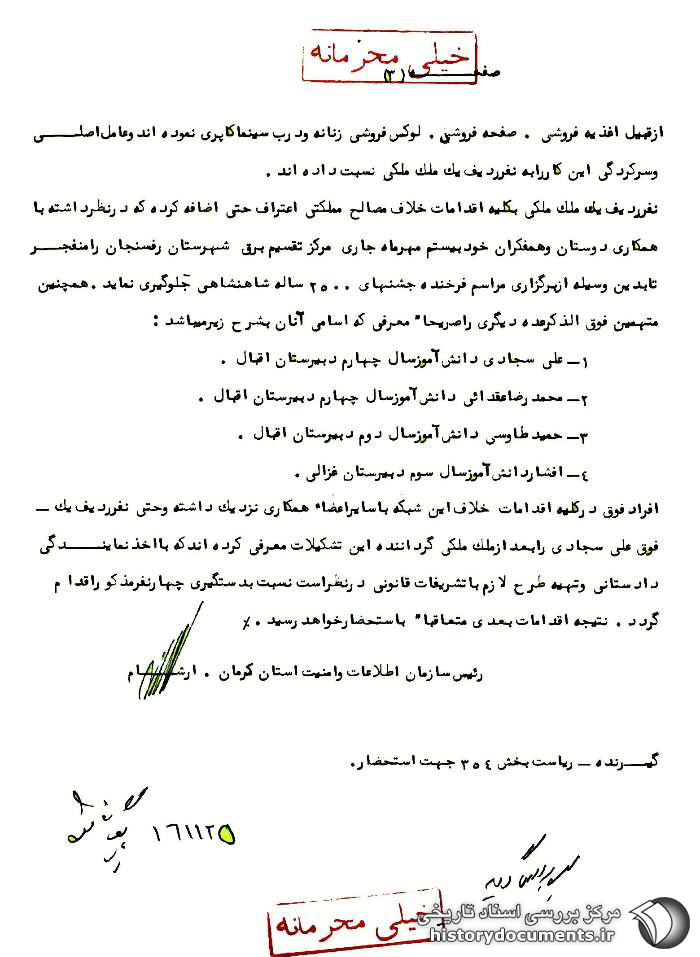 خیلی محرمانه
صفحـــــه (۳)
ازقبیل اغذیه فروشی . صفحه فروشی . لوکس فروشی زنانه ودرب سینماکاپری نموده اند وعامل اصلـــی
وسرکردگی این کاررابه نفرردیف یك ملك ملکی نسبت داده اند .
نفرردیف یك ملك ملکی بکلیه اقدامات خلاف مصالح مملکتی اعتراف حتی اضافه کرده که درنظرداشته با
همکاری دوستان وهمفکران خود بیستم مهرماه جاری مرکز تقسیم برق شهرستان رفسنجان رامنفجــر
تابدین وسیله ازبرگزاری مراسم فرخنده جشنهای ۲۵۰۰ ساله شاهنشاهی جلوگیری نماید . همچنین
متهمین فوق الذکرعده دیگری راصریحاً معرفی که اسامی آنان بشرح زیرمیباشد :
۱ــ علی سجادی دانش آموزسال چهارم دبیرستان اقبال .
۲ــ محمد رضاعقدائی دانش آموزسال چهارم دبیرستان اقبال .
۳ــ حمید طاوسی دانش آموزسال دوم دبیرستان اقبال .
٤ــ افشاردانش آموزسال سوم دبیرستان غزالی .
افراد فوق درکلیه اقدامات خلاف این شبکه باسایراعضاء همکاری نزدیك داشته وحتی نفرردیف یك ــ
فوق علی سجادی رابعدازملك ملکی گرداننده این تشکیلات معرفی کرده اندکه بااخذ نماینـــدگی
دادستانی وتهیه طرح لازم باتشریفات قانونی درنظراست نسبت بدستگیری چهارنفرمذکوراقدام
گردد . نتیجه اقدامات بعدی متعاقباً باستحضارخواهد رسید . ٪
رئیس سازمان اطلاعات وامنیت استان کرمان . ارشـــام
گیــرنده ــ ریاست بخش ۳۵٤ جهت استحضار.
۱٦۱۱۲۵
خیلی محرمانه
مرکز بررسی اسناد تاریخی
historydocuments.ir